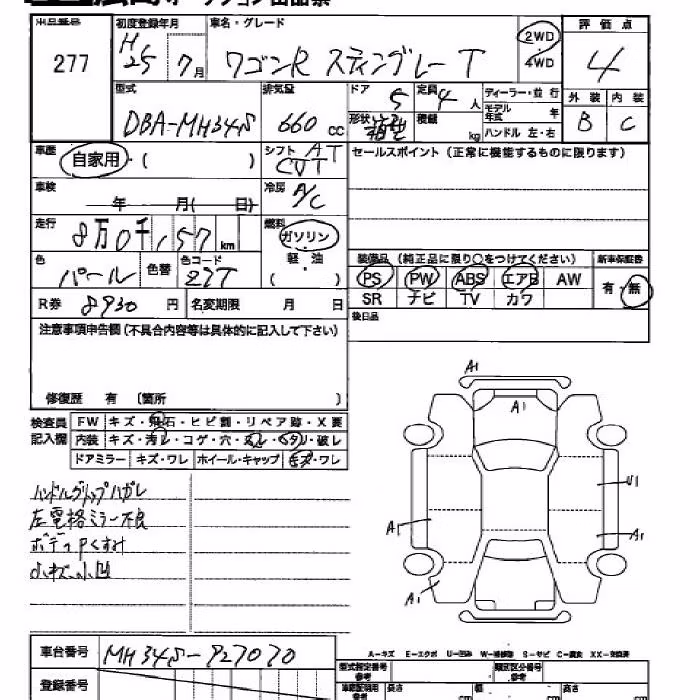 出品番号
277
初度登録年月
H25 7月
車名・グレード
ワゴンR スティングレー T
2WD
4WD
評価点
4
外装 内装
B C
型式
DBA-MH34S
排気量
660 cc
ドア
5
定員
4人
形状
積載
kg
ディーラー・並行
モデル年式 年
ハンドル 左・右
車歴
自家用・( )
シフト AT
CVT
セールスポイント(正常に機能するものに限ります)
車検
年 月( 日)
冷房
A/C
走行
8万0千,157 km
燃料
ガソリン
軽・油
( )
色
パール
色替
色コード
Z7T
装備品(純正品に限り○をつけてください)
新車保証書
PS PW ABS エアB AW
SR ナビ TV カワ
有・無
R券 8930 円
名変期限 月 日
後日品
注意事項申告欄(不具合内容等は具体的に記入して下さい)
修復歴 有 〔箇所 〕
検査員記入欄
FW キズ・飛石・ヒビ割・リペア跡・X要
内装 キズ・汚レ・コゲ・穴・スレ・ヘタリ・破レ
ドアミラー キズ・ワレ ホイール・キャップ キズ・ワレ
ハンドルグリップハガレ
左電格ミラー不良
ボディPくすみ
小キズ、小凹
A1
A1
U1
A1
A1
A1
A-キズ E-エクボ U-凹み W-補修跡 S-サビ C-腐食 XX-交換済
車台番号
MH34S-927070
登録番号
型式指定番号
参考
類別区分番号
参考
車庫証明用
参考
長さ cm
幅 cm
高さ cm